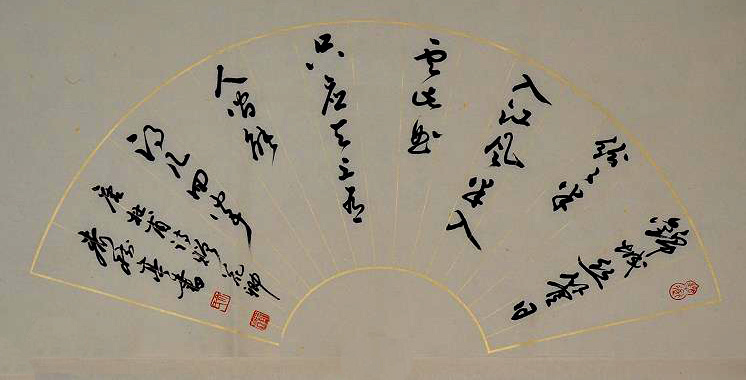 錦城絲管日
紛紛半
入江風半入
雲此曲
只應天上有
人間能
得幾回聞
唐杜甫詩贈花卿
書